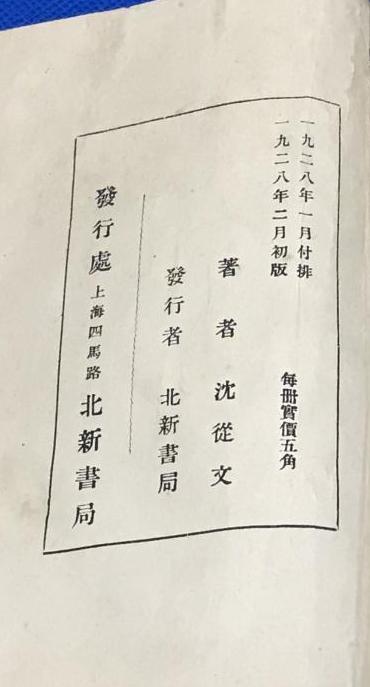 一九二八年一月付排
一九二八年二月初版
每冊實價五角
著者 沈從文
發行者 北新書局
發行處 上海四馬路 北新書局